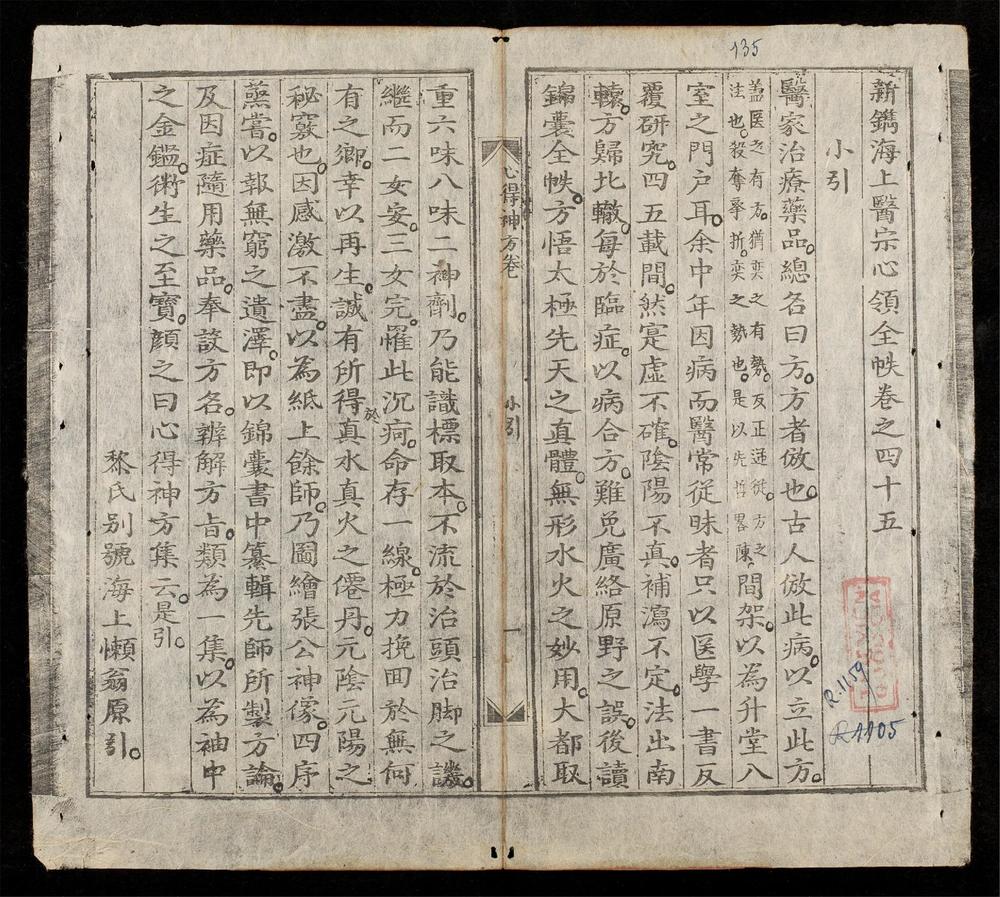 135
新鐫海上醫宗心領全帙卷之四十五
小引
醫家治療藥品。總名曰方。方者倣也。古人倣此病。以立此方。
蓋医之有方。猶奕之有勢。反正通徒。方之
注也。殺奪拏折。奕之勢也。是以先哲畧陳
間架。以為升堂入
室之門戸耳。余中年因病而醫常從昧者只以医學一書反
覆研究。四五載間。然寔虚不確。陰陽不真。補瀉不定。法出南
轅。方歸北轍。每於臨症。以病合方。難免廣絡原野之誤。後讀
錦囊全帙。方悟太極先天之真體。無形水火之妙用。大都取
心得神方卷
小引
一
重六味八味二神劑。乃能識標取本。不流於治頭治脚之譏。
繼而二女安。三女完。罹此沉疴。命存一線。極力挽囬於無何
有之鄉。幸以再生。誠有所得於真水真火之僊丹。元陰元陽之
秘竅也。因感激不盡。以為紙上餘師。乃圖繪張公神像。四序
蒸嘗。以報無窮之遺澤。即以錦囊書中纂輯先師所製方論。
及因症隨用藥品。奉設方名。辨解方旨。類為一集。以為袖中
之金鑑。衛生之至寶。顔之曰心得神方集云。是引。
黎氏别號海上懶翁原引。
R.1159
R1105